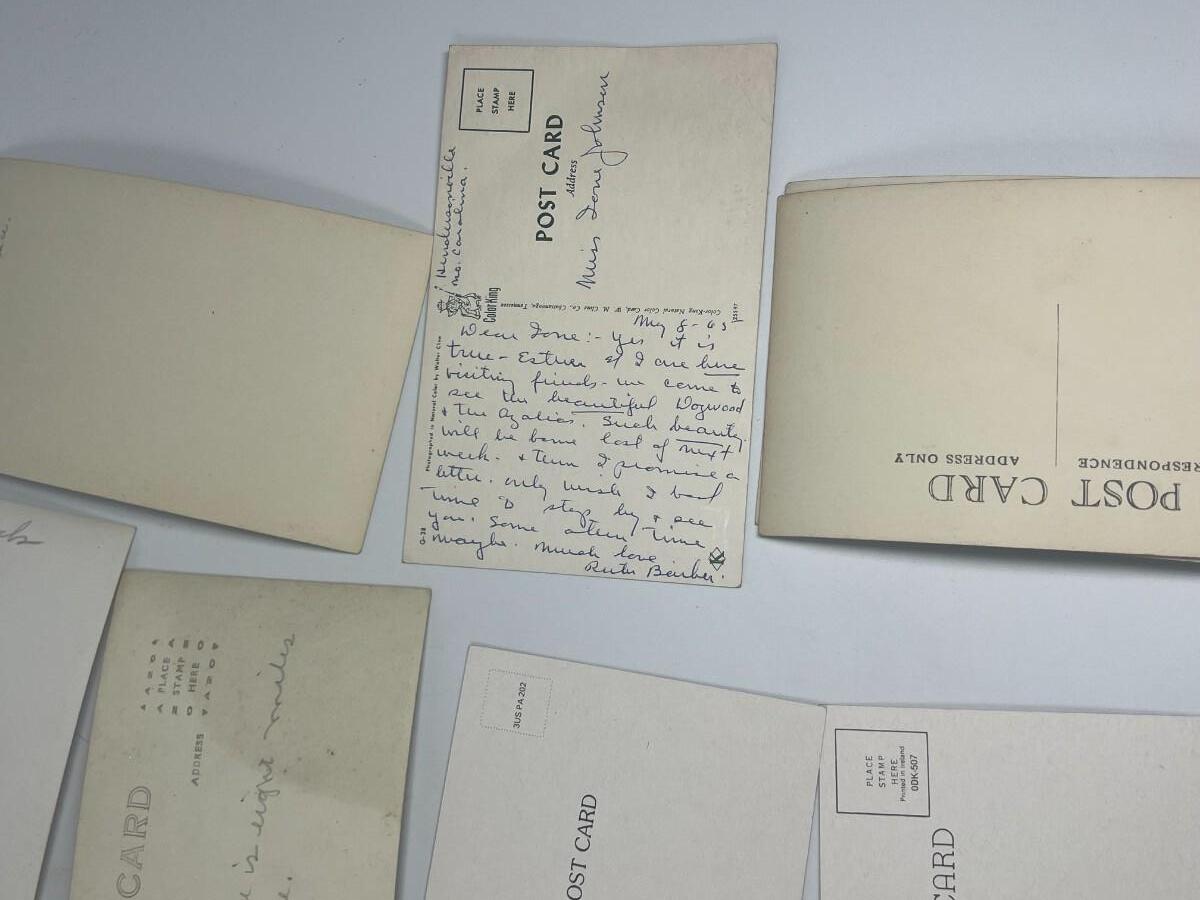 PLACE
STAMP
HERE
POST CARD
Address
Miss Ione Johnson
Hendersonville
No. Carolina.
ColorKing
Color-King Natural Color Card, W. M. Cline Co., Chattanooga, Tennessee
Photographed in Natural Color by Walter Cline
G-28
May 8-65
Dear Ione:- Yes it is
true - Esther & I are here
visiting friends - we came to
see the beautiful Dogwood
& the Azalias. Such beauty.
will be home last of next
week. & then I promise a
letter. only wish I had
time to stop by & see
you. Some other time
maybe. Much love
Ruth Barber.
K
RESPONDENCE
ADDRESS ONLY
POST CARD
PLACE
STAMP
HERE
ADDRESS
CARD
is eight miles
3US PA 202
OST CARD
PLACE
STAMP
HERE
Printed in Ireland
ODK-507
CARD